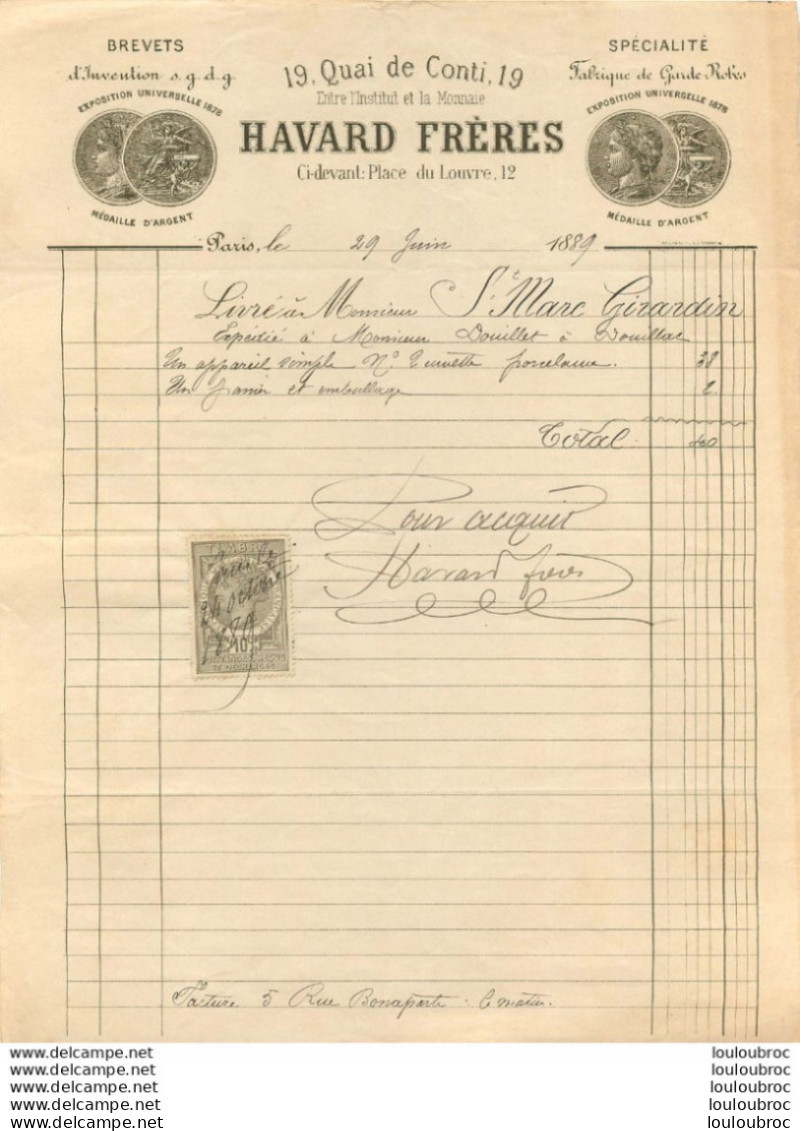 BREVETS
d'Invention s.g.d.g
EXPOSITION UNIVERSELLE 1878
MÉDAILLE D'ARGENT
19, Quai de Conti, 19
Entre l'Institut et la Monnaie
HAVARD FRÈRES
Ci-devant: Place du Louvre, 12
SPÉCIALITÉ
Fabrique de Garde-Robes
EXPOSITION UNIVERSELLE 1878
MÉDAILLE D'ARGENT
Paris, le 29 Juin 1889
Livré à Monsieur St Marc Girardin
Expédié à Monsieur Douillet à
Un appareil simple No 2 cuvette porcelaine. 38
Un panier et emballage 2
Total. 40
Pour acquit
Havard frères
TIMBRE
24 octobre
10
Facture 5 Rue Bonaparte. le matin.
www.delcampe.net louloubroc
www.delcampe.net louloubroc
www.delcampe.net louloubroc
www.delcampe.net louloubroc
www.delcampe.net louloubroc